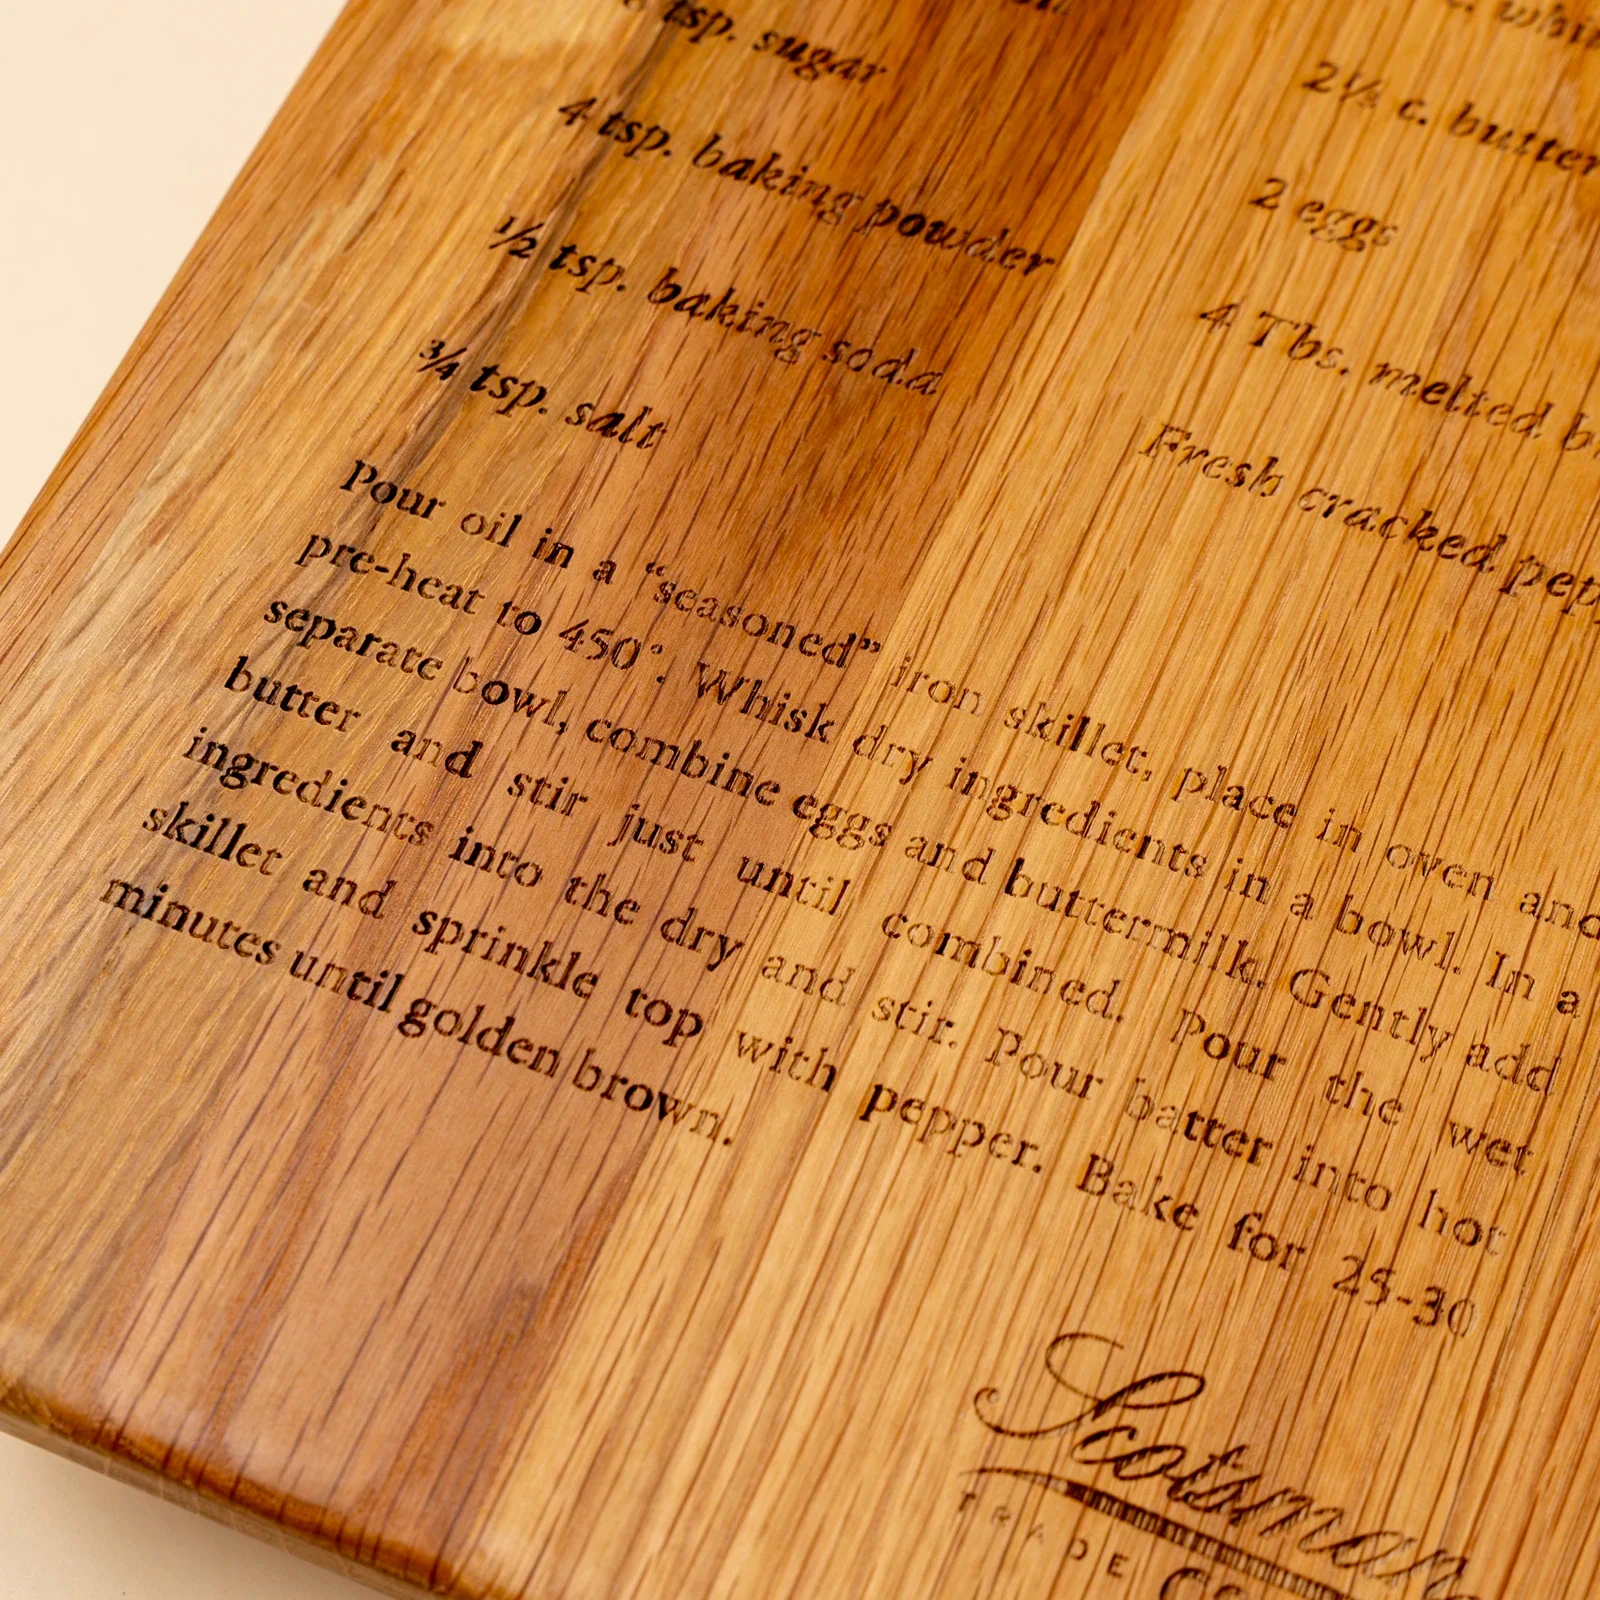 tsp. sugar
4 tsp. baking powder
½ tsp. baking soda
¾ tsp. salt
2½ c. butter
2 eggs
4 Tbs. melted b
Fresh cracked pepp
Pour oil in a “seasoned” iron skillet, place in oven and
pre-heat to 450°. Whisk dry ingredients in a bowl. In a
separate bowl, combine eggs and buttermilk. Gently add
butter and stir just until combined. Pour the wet
ingredients into the dry and stir. Pour batter into hot
skillet and sprinkle top with pepper. Bake for 25-30
minutes until golden brown.
Scotsman
TRADE CO